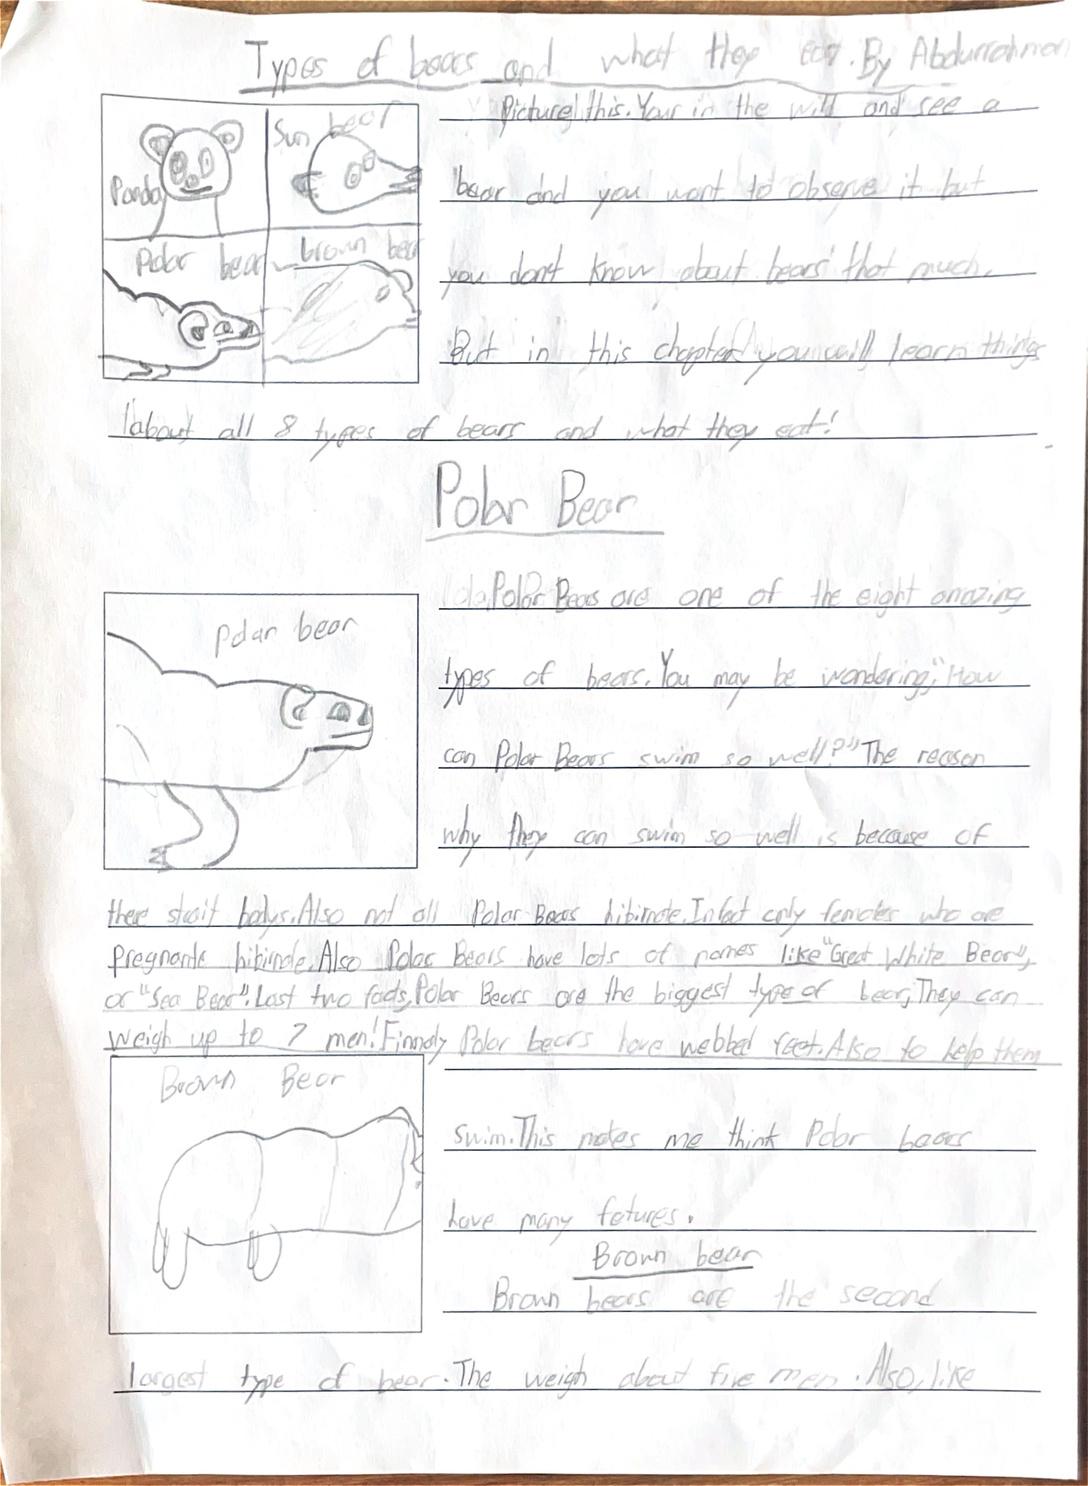 Types of bears and what they eat. By Abdurrahman
Panda
Sun bear
Polar bear
brown bear
Picture this. Your in the wild and see a
bear and you want to observe it but
you don't know about bears that much.
But in this chapter you will learn things
about all 8 types of bears and what they eat!
Polar Bear
Polar bear
Polar Bears are one of the eight amazing
types of bears. You may be wondering, "How
can Polar Bears swim so well?" The reason
why they can swim so well is because of
there strait bodys. Also not all Polar Bears hibirnate. Infact only females who are
pregnante hibirnde. Also Polar Bears have lots of names like "Great White Bear",
or "Sea Bear". Last two facts, Polar Bears are the biggest type of bear, They can
weigh up to 7 men! Finnaly Polar bears have webbed feet. Also to help them
Brown Bear
swim. This makes me think Polar bears
have many fatures.
Brown bear
Brown bears are the second
largest type of bear. The weigh about five men. Also, like